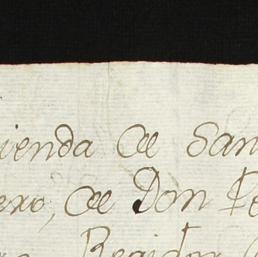 ienda de San
ero, de Don Pe
Regidor